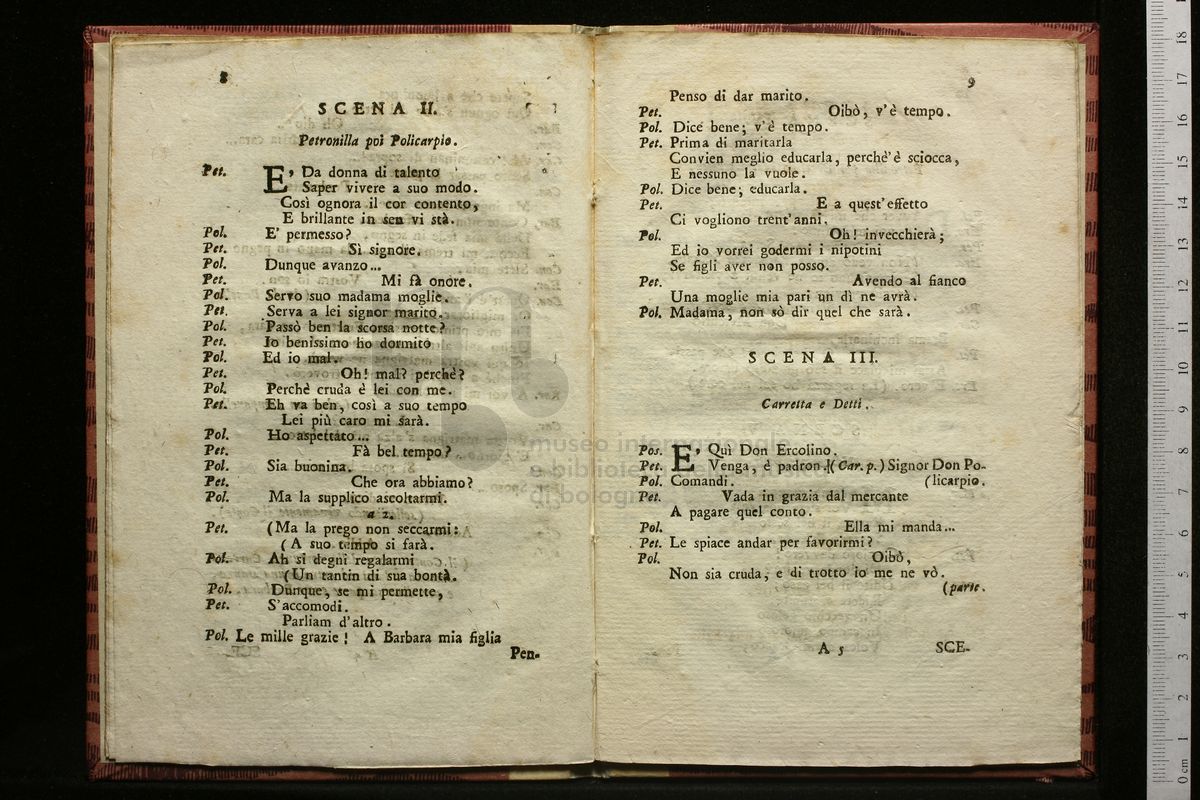 8
SCENA II.
Petronilla poi Policarpio.
Pet. E' Da donna di talento
Saper vivere a suo modo.
Così ognora il cor contento,
E brillante in sen vi stà.
Pol. E' permesso?
Pet. Sì signore.
Pol. Dunque avanzo...
Pet. Mi fà onore.
Pol. Servo suo madama moglie.
Pet. Serva a lei signor marito.
Pol. Passò ben la scorsa notte?
Pet. Io benissimo ho dormito
Pol. Ed io mal.
Pet. Oh! mal? perchè?
Pol. Perchè cruda è lei con me.
Pet. Eh va ben, così a suo tempo
Lei più caro mi sarà.
Pol. Ho aspettato...
Pet. Fà bel tempo?
Pol. Sia buonina.
Pet. Che ora abbiamo?
Pol. Ma la supplico ascoltarmi.
a 2.
Pet. (Ma la prego non seccarmi:
(A suo tempo si farà.
Pol. Ah si degni regalarmi
(Un tantin di sua bontà.
Pol. Dunque, se mi permette,
Pet. S'accomodi.
Parliam d'altro.
Pol. Le mille grazie! A Barbara mia figlia
Pen-
9
Penso di dar marito.
Pet. Oibò, v'è tempo.
Pol. Dice bene; v'è tempo.
Pet. Prima di maritarla
Convien meglio educarla, perchè'è sciocca,
E nessuno la vuole.
Pol. Dice bene; educarla.
Pet. E a quest'effetto
Ci vogliono trent'anni.
Pol. Oh! invecchierà;
Ed io vorrei godermi i nipotini
Se figli aver non posso.
Pet. Avendo al fianco
Una moglie mia pari un dì ne avrà.
Pol. Madama, non sò dir quel che sarà.
SCENA III.
Carretta e Detti.
Pos. E' Quì Don Ercolino.
Pet. Venga, è padron.(Car. p.) Signor Don Po-
Pol. Comandi. (licarpio.
Pet. Vada in grazia dal mercante
A pagare quel conto.
Pol. Ella mi manda...
Pet. Le spiace andar per favorirmi?
Pol. Oibò,
Non sia cruda, e di trotto io me ne vò.
(parte.
A 5
SCE-
museo internazionale
e biblioteca
di bologna